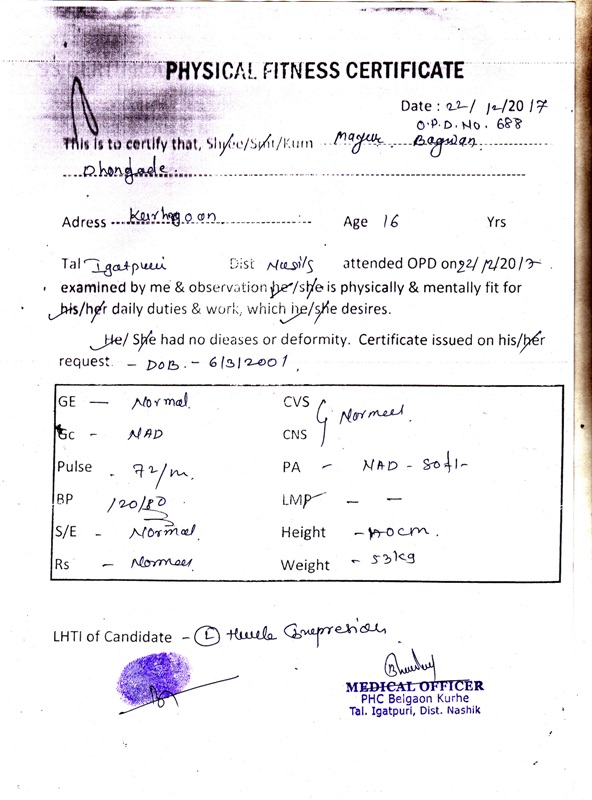 PHYSICAL FITNESS CERTIFICATE
Date : 22/ 12/2017
O.P.D. No. 688
This is to certify that, Shree/Smt/Kum Bagwan
Dhongade.
Adress Age 16 Yrs
Tal Igatpuri Dist attended OPD on 22/12/2017.
examined by me & observation he/she is physically & mentally fit for
his/her daily duties & work, which he/she desires.
He/ She had no dieases or deformity. Certificate issued on his/her
request. - DOB. - 6/3/2001.
GE — Normal.
CVS Normal
Gc - NAD
CNS
Pulse - 72/m.
PA - NAD - Soft-
BP 120/80
LMP - -
S/E - Normal.
Height - cm.
Rs - Normal
Weight - 53kg
LHTI of Candidate - (L)
MEDICAL OFFICER
PHC Belgaon Kurhe
Tal. Igatpuri, Dist. Nashik